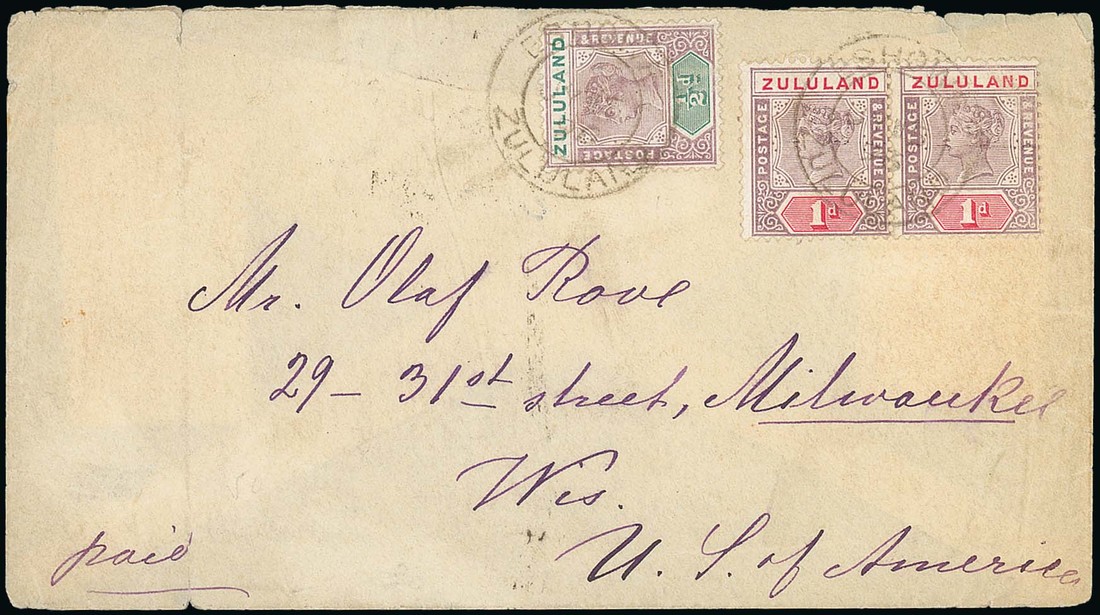 ZULULAND
POSTAGE
& REVENUE
½d
ZULULAND
ZULULAND
POSTAGE
& REVENUE
1d
ZULULAND
POSTAGE
& REVENUE
1d
Mr. Olaf Rove
29 – 31st street, Milwaukee
Wis.
U. S. of America
paid